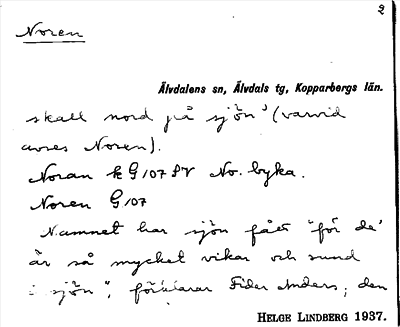 2
Noren
Älvdalens sn, Älvdals tg, Kopparbergs län.
skall nord på sjön' (varvid
avses Noren).
Noran k G107 SV No. byka.
Noren G107
Namnet har sjön fått "för de'
är så mycket vikar och sund
i sjön", förklarar Fider Anders; den
HELGE LINDBERG 1937.